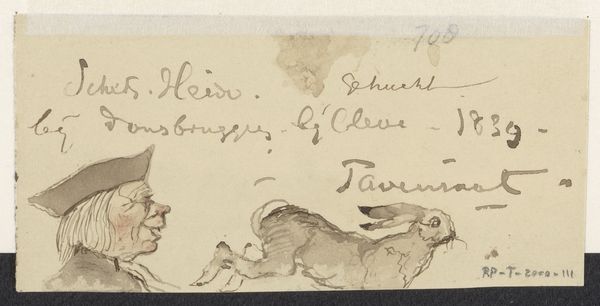 708
Schets. Heide. Gehucht
bij Donsbruggen bij Cleve - 1839 -
Tavenraat
RP-T-2000-111